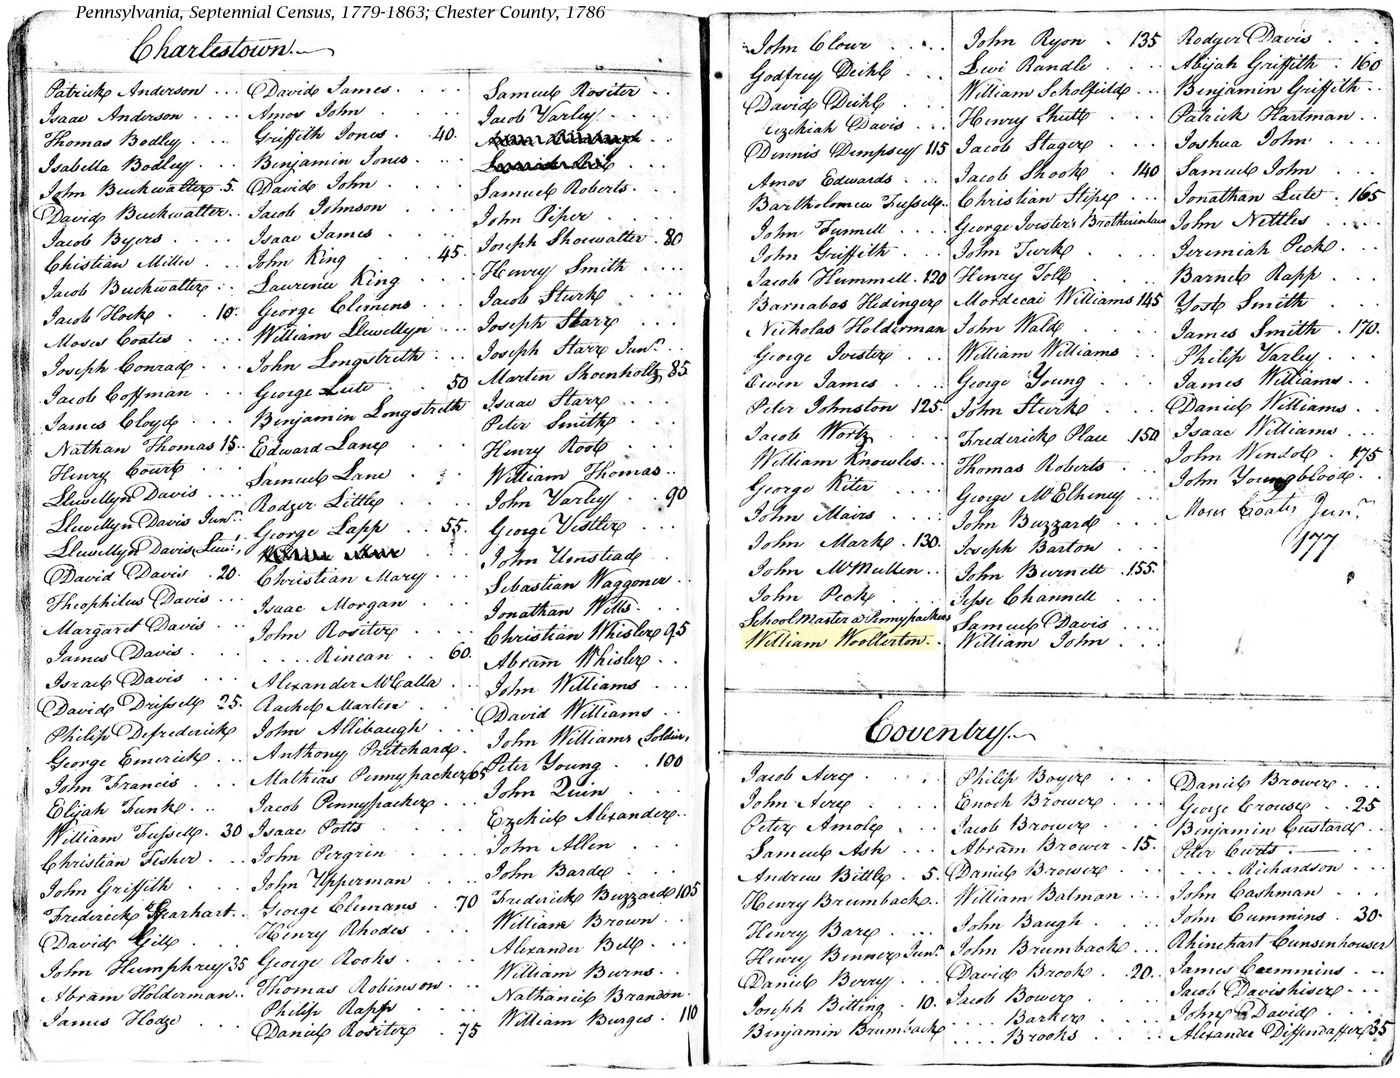 Pennsylvania, Septennial Census, 1779-1863; Chester County, 1786
Charlestown
Patrick Anderson
Isaac Anderson
Thomas Bodley
Isabella Bodley
John Buckwalter 5
David Buckwalter
Jacob Byers
Christian Miller
Jacob Buckwalter
Jacob Hock 10
Moses Coates
Joseph Conrad
Jacob Coffman
James Cloyd
Nathan Thomas 15
Henry Court
Llewellyn Davis
Llewellyn Davis Jun.r
Llewellyn Davis
David Davis 20
Theophilus Davis
Margaret Davis
James Davis
Israel Davis
David Drissell 25
Philip Defrederick
George Emerick
John Francis
Elijah Funk
William Fussell 30
Christian Fisher
John Griffith
Frederick Gearhart
David Gill
John Humphrey 35
Abram Holderman
James Hodge
David James
Amos John
Griffith Jones 40
Benjamin Jones
David John
Jacob Johnson
Isaac James
John King 45
Laurence King
George Clemens
William Llewellyn
John Longstreth
George Lute 50
Benjamin Longstreth
Edward Lane
Samuel Lane
Rodger Little
George Lapp 55
Christian Mary
Isaac Morgan
John Rositer
Rinean 60
Alexander McCalla
Rachel Martin
John Allibaugh
Anthony Pritchard
Mathias Pennypacker 65
Jacob Pennypacker
Isaac Potts
John Pergrin
John Upperman
George Clemans 70
Henry Rhodes
George Rooks
Thomas Robinson
Philip Rapp
Daniel Rositer 75
Samuel Rositer
Jacob Varley
Samuel Roberts
John Piper
Joseph Showalter 80
Henry Smith
Jacob Sturk
Joseph Starr
Joseph Starr Jun.r
Martin Shoenholtz 85
Isaac Starr
Peter Smith
Henry Root
William Thomas
John Varley 90
George Vestler
John Umstead
Sebastian Waggoner
Jonathan Wills
Christian Whisler 95
Abram Whisler
John Williams
David Williams
John Williams (Soldier)
Peter Young 100
John Quin
Ezekiel Alexander
John Allen
John Bard
Frederick Buzzard 105
William Brown
Alexander Bell
William Burns
Nathaniel Brandon
William Burges 110
John Clour
Godfrey Deihl
David Diehl
Ezekiah Davis
Dennis Dempsey 115
Amos Edwards
Bartholomew Fussell
John Funnell
John Griffith
Jacob Hummell 120
Barnabas Hidinger
Nicholas Holderman
George Ivester
Owen James
Peter Johnston 125
Jacob Wortz
William Knowles
George Kiter
John Mairs
John Mark 130
John McMullen
John Peck
School Master a Pennypackers
William Woollerton
John Ryon 135
Levi Randle
William Scholfield
Henry Shutt
Jacob Stager
Jacob Shook 140
Christian Stipe
George Ivester's Brotherinlaw
John Turk
Henry Toll
Mordecai Williams 145
John Wald
William Williams
George Young
John Sturk
Frederick Place 150
Thomas Roberts
George McElheney
John Buzzard
Joseph Barton
John Burnett 155
Jesse Channell
Samuel Davis
William John
Rodger Davis
Abijah Griffith 160
Benjamin Griffith
Patrick Hartman
Joshua John
Samuel John
Jonathan Lute 165
John Nettles
Jeremiah Peck
Barnet Rapp
Yost Smith
James Smith 170
Philip Varley
James Williams
Daniel Williams
Isaac Williams
John Windol 175
John Youngblood
Moses Coates Jun.r
177
Coventry
Jacob Airy
John Airey
Peter Amole
Samuel Ash
Andrew Bittle 5
Henry Brumback
Henry Bare
Henry Benner Jun.r
Daniel Berry
Joseph Bitting 10
Benjamin Brumback
Philip Boyer
Enoch Brower
Jacob Brower
Abram Brower 15
Daniel Brower
William Batman
John Baugh
John Brumback
David Brook 20
Jacob Bower
Barker
Brooks
Daniel Brower
George Crouse 25
Benjamin Custard
Peter Curts
Richardson
John Cashman
John Cummins 30
Rhinehart Cunsenhouser
James Cummins
Jacob Davishiser
John David
Alexander Diffendaffer 35